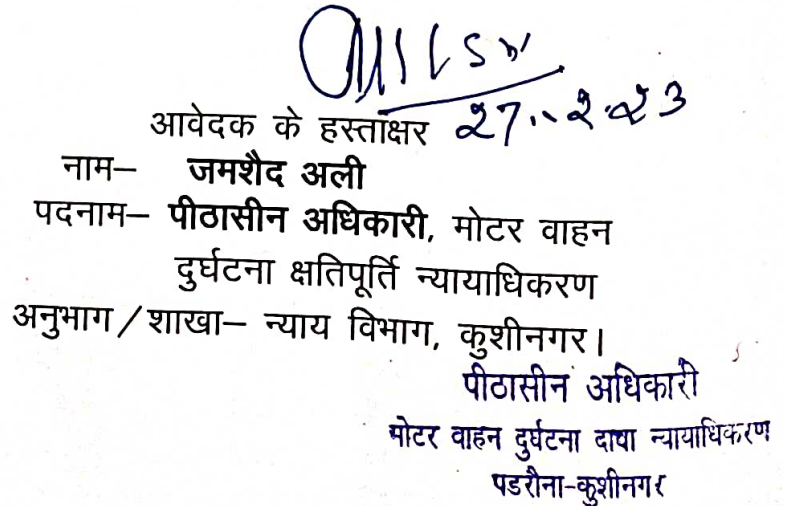 27.-2.23
आवेदक के हस्ताक्षर
नाम– जमशैद अली
पदनाम– पीठासीन अधिकारी, मोटर वाहन
दुर्घटना क्षतिपूर्ति न्यायाधिकरण
अनुभाग / शाखा– न्याय विभाग, कुशीनगर।
पीठासीन अधिकारी
मोटर वाहन दुर्घटना दावा न्यायाधिकरण
पडरौना-कुशीनगर